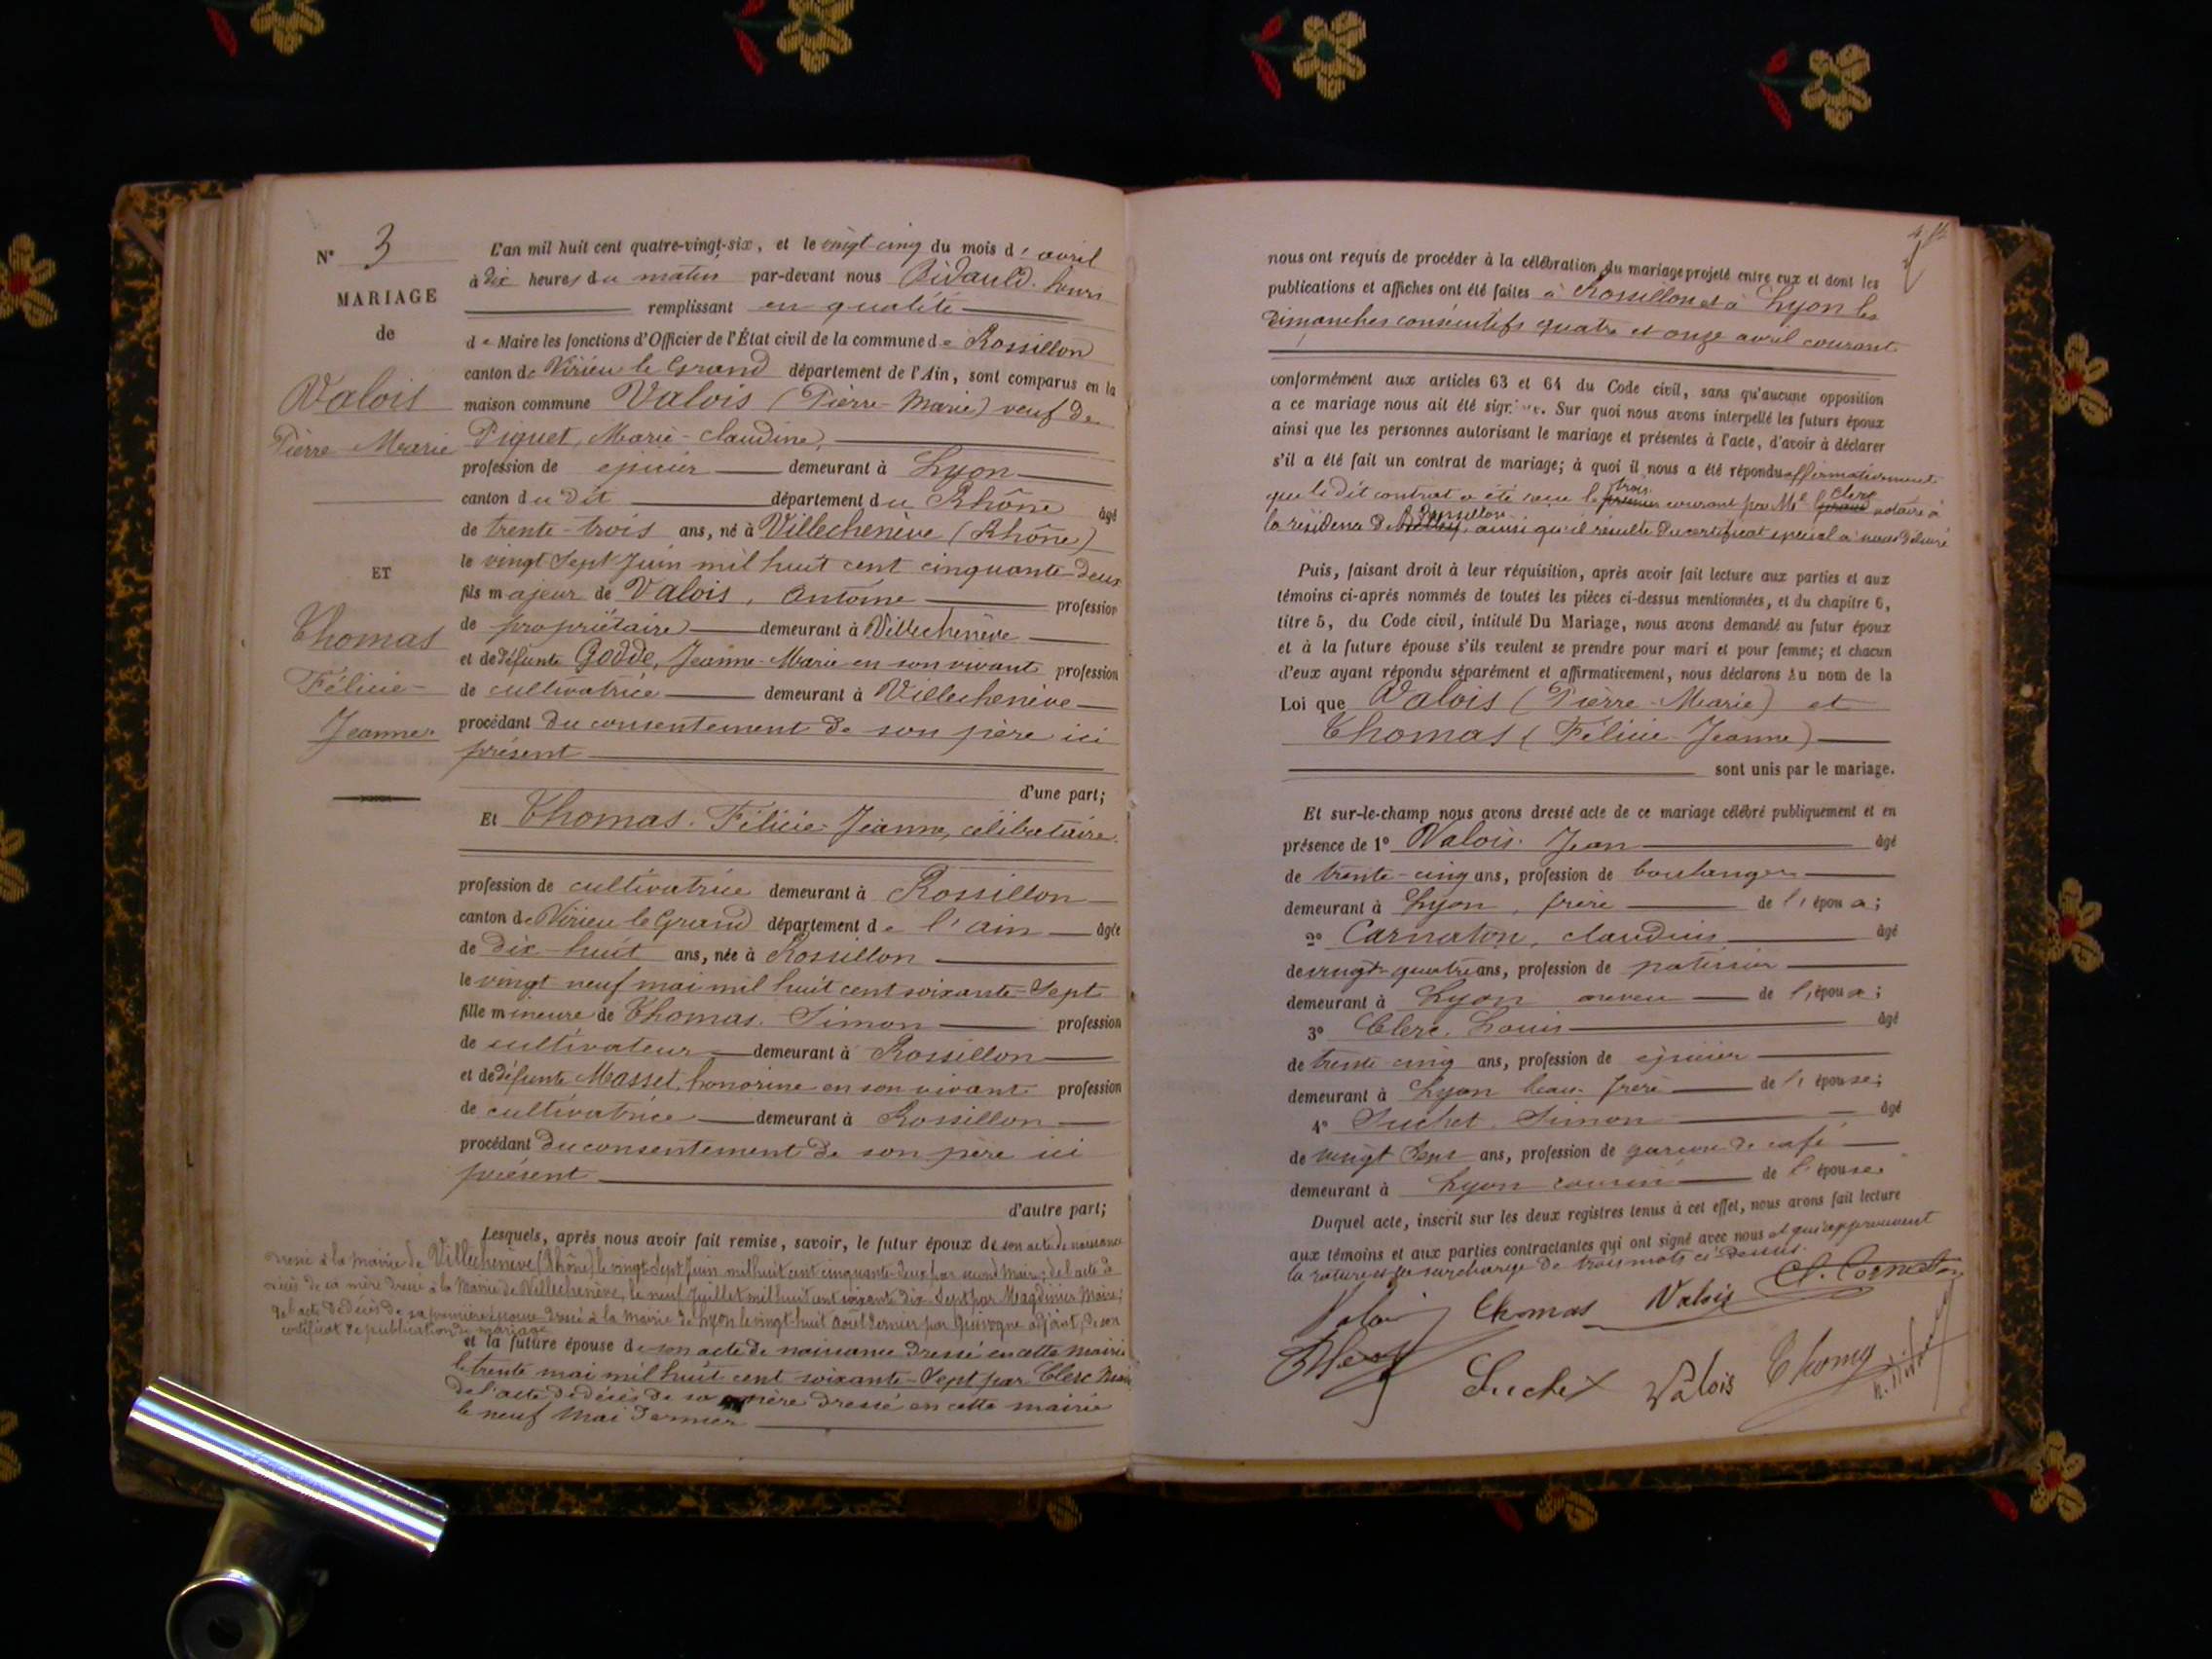 N° 3
MARIAGE
de
Valois
Pierre Marie
ET
Thomas
Félicie-
Jeanne.
L'an mil huit cent quatre-vingt-six, et le vingt-cinq du mois d' avril
à dix heures du matin par-devant nous Bidauld. henri
remplissant en qualité
de Maire les fonctions d'Officier de l'État civil de la commune de Rossillon
canton de Virieu le Grand département de l'Ain, sont comparus en la
maison commune Valois (Pierre-Marie) veuf de
Piquet, Marie-claudine,
profession de epicier demeurant à Lyon
canton du dit département du Rhône âgé
de trente-trois ans, né à Villechenève (Rhône)
le vingt Sept Juin mil huit cent cinquante deux
fils majeur de Valois, Antoine profession
de propriétaire demeurant à Villechenève
et de défunte Godde, Jeanne-Marie en son vivant profession
de cultivatrice demeurant à Villechenève
procédant du consentement de son père ici
présent
d'une part;
Et Thomas. Félicie-Jeanne, célibataire.
profession de cultivatrice demeurant à Rossillon
canton de Virieu le Grand département de l'ain âgée
de dix-huit ans, née à Rossillon
le vingt neuf mai mil huit cent soixante-Sept
fille mineure de Thomas. Simon profession
de cultivateur demeurant à Rossillon
et de défunte Masset, honorine en son vivant profession
de cultivatrice demeurant à Rossillon
procédant du consentement de son père ici
présent
d'autre part;
Lesquels, après nous avoir fait remise, savoir, le futur époux de son acte de naissance
dressé à la mairie de Villechenève (Rhône) le vingt-Sept Juin mil huit cent cinquante-deux par maire; de l'acte de
décès de sa mère dressé à la Mairie de Villechenève, le neuf Juillet mil huit cent soixante dix-Sept par Magdinier Maire;
de l'acte de décès de sa première épouse dressé à la mairie de Lyon le vingt-huit août dernier par adjoint, de son
certificat de publication de mariage
et la future épouse de son acte de naissance dressé en cette mairie
le trente mai mil huit cent soixante-Sept par Clerc Maire
de l'acte de décès de sa mère dressé en cette mairie
le neuf Mai dernier
nous ont requis de procéder à la célébration du mariage projeté entre eux et dont les
publications et affiches ont été faites à Rossillon et à Lyon les
Dimanches consécutifs quatre et onze avril courant
conformément aux articles 63 et 64 du Code civil, sans qu'aucune opposition
a ce mariage nous ait été signifiée. Sur quoi nous avons interpellé les futurs époux
ainsi que les personnes autorisant le mariage et présentes à l'acte, d'avoir à déclarer
s'il a été fait un contrat de mariage; à quoi il nous a été répondu affirmativement
que le dit contrat a été reçu le premier trois courant par Me Clerc notaire à
la résidence de Belley Rossillon, ainsi qu'il resulte du certificat spécial à nous délivré
Puis, faisant droit à leur réquisition, après avoir fait lecture aux parties et aux
témoins ci-après nommés de toutes les pièces ci-dessus mentionnées, et du chapitre 6,
titre 5, du Code civil, intitulé Du Mariage, nous avons demandé au futur époux
et à la future épouse s'ils veulent se prendre pour mari et pour femme; et chacun
d'eux ayant répondu séparément et affirmativement, nous déclarons au nom de la
Loi que Valois (Pierre-Marie) et
Thomas (Félicie-Jeanne)
sont unis par le mariage.
Et sur-le-champ nous avons dressé acte de ce mariage célébré publiquement et en
présence de 1° Valois. Jean âgé
de trente-cinq ans, profession de boulanger
demeurant à Lyon, frère de l'époux;
2° Carneton, claudius âgé
de vingt-quatre ans, profession de patissier
demeurant à Lyon neveu de l'époux;
3° Clerc. Louis âgé
de trente cinq ans, profession de épicier
demeurant à Lyon beau-frère de l'épouse;
4° Suchet. Simon âgé
de vingt Sept ans, profession de garçon de café
demeurant à Lyon cousin de l'épouse.
Duquel acte, inscrit sur les deux registres tenus à cet effet, nous avons fait lecture
aux témoins et aux parties contractantes qui ont signé avec nous et qui approuvent
la rature et la surcharge de trois mots ci-dessus.
Valois Thomas Valois Cl. Carneton
Clerc Suchet Valois Thomas